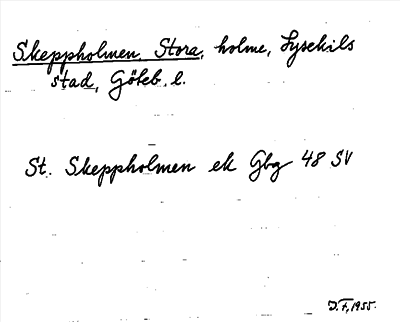 Skeppholmen, Stora, holme, Lysekils
stad, Göteb. l.
St. Skeppholmen ek Gbg 48 SV
D.F., 1955.